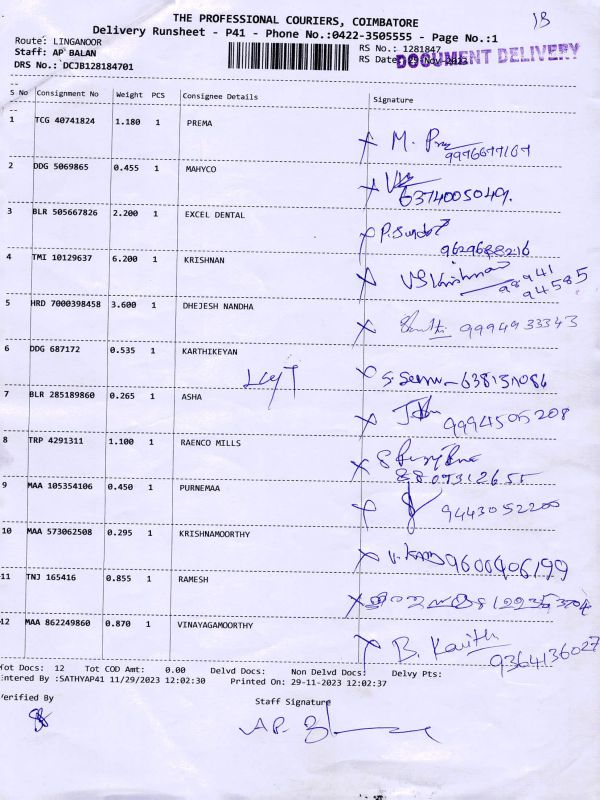 13
THE PROFESSIONAL COURIERS, COIMBATORE
Delivery Runsheet - P41 - Phone No.:0422-3505555 - Page No.:1
Route: LINGANOOR
RS No.: 1281847
Staff: AP BALAN
RS Date: 29-Nov-2023
DOCUMENT DELIVERY
DRS No.: DCJB128184701
S No Consignment No Weight PCS Consignee Details Signature
1 TCG 40741824 1.180 1 PREMA
M.
2 DDG 5069865 0.455 1 MAHYCO
6374005049.
3 BLR 505667826 2.200 1 EXCEL DENTAL
9629688216
4 TMI 10129637 6.200 1 KRISHNAN
VS Krishnan 98941
94585
5 HRD 7000398458 3.600 1 DHEJESH NANDHA
9994933343
6 DDG 687172 0.535 1 KARTHIKEYAN
7 BLR 285189860 0.265 1 ASHA
9994505208
8 TRP 4291311 1.100 1 RAENCO MILLS
9 MAA 105354106 0.450 1 PURNEMAA
9443052200
10 MAA 573062508 0.295 1 KRISHNAMOORTHY
9600406199
11 TNJ 165416 0.855 1 RAMESH
12 MAA 862249860 0.870 1 VINAYAGAMOORTHY
B. Kavith
9364136027
Tot Docs: 12 Tot COD Amt: 0.00 Delvd Docs: Non Delvd Docs: Delvy Pts:
ntered By :SATHYAP41 11/29/2023 12:02:30 Printed On: 29-11-2023 12:02:37
erified By
Staff Signature
AP.